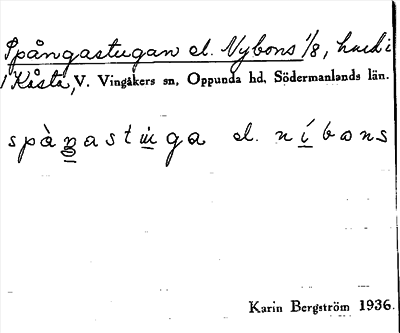 Spångastugan el. Nybons 1/8,
i Kåsta, V. Vingåkers sn, Oppunda hd, Södermanlands län.
spànastuga el. níbons
Karin Bergström 1936.